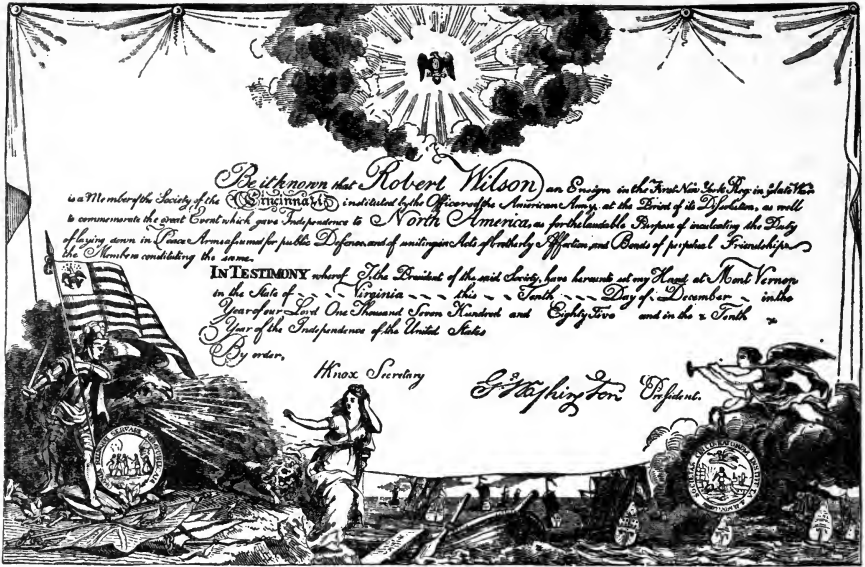 Be it known that Robert Wilson an Ensign in the First New York Reg: in ye late War
is a Member of the Society of the Cincinnati; instituted by the Officers of the American Army, at the Period of its Dissolution, as well
to commemorate the great Event which gave Independence to North America, as for the laudable Purpose of inculcating the Duty
of laying down in Peace Arms assumed for public Defence, and of uniting in Acts of brotherly Affection, and Bonds of perpetual Friendship,
the Members constituting the same.
IN TESTIMONY whereof I, the President of the said Society, have hereunto set my Hand at Mont Vernon
in the State of - - - - Virginia - - - - this - - Tenth - - - Day of - December - - in the
Year of our Lord One Thousand Seven Hundred and Eighty Five and in the Tenth
Year of the Independence of the United States
By order,
HKnox Secretary
Go Washington President.
OMNIA SERVARE REMPUB